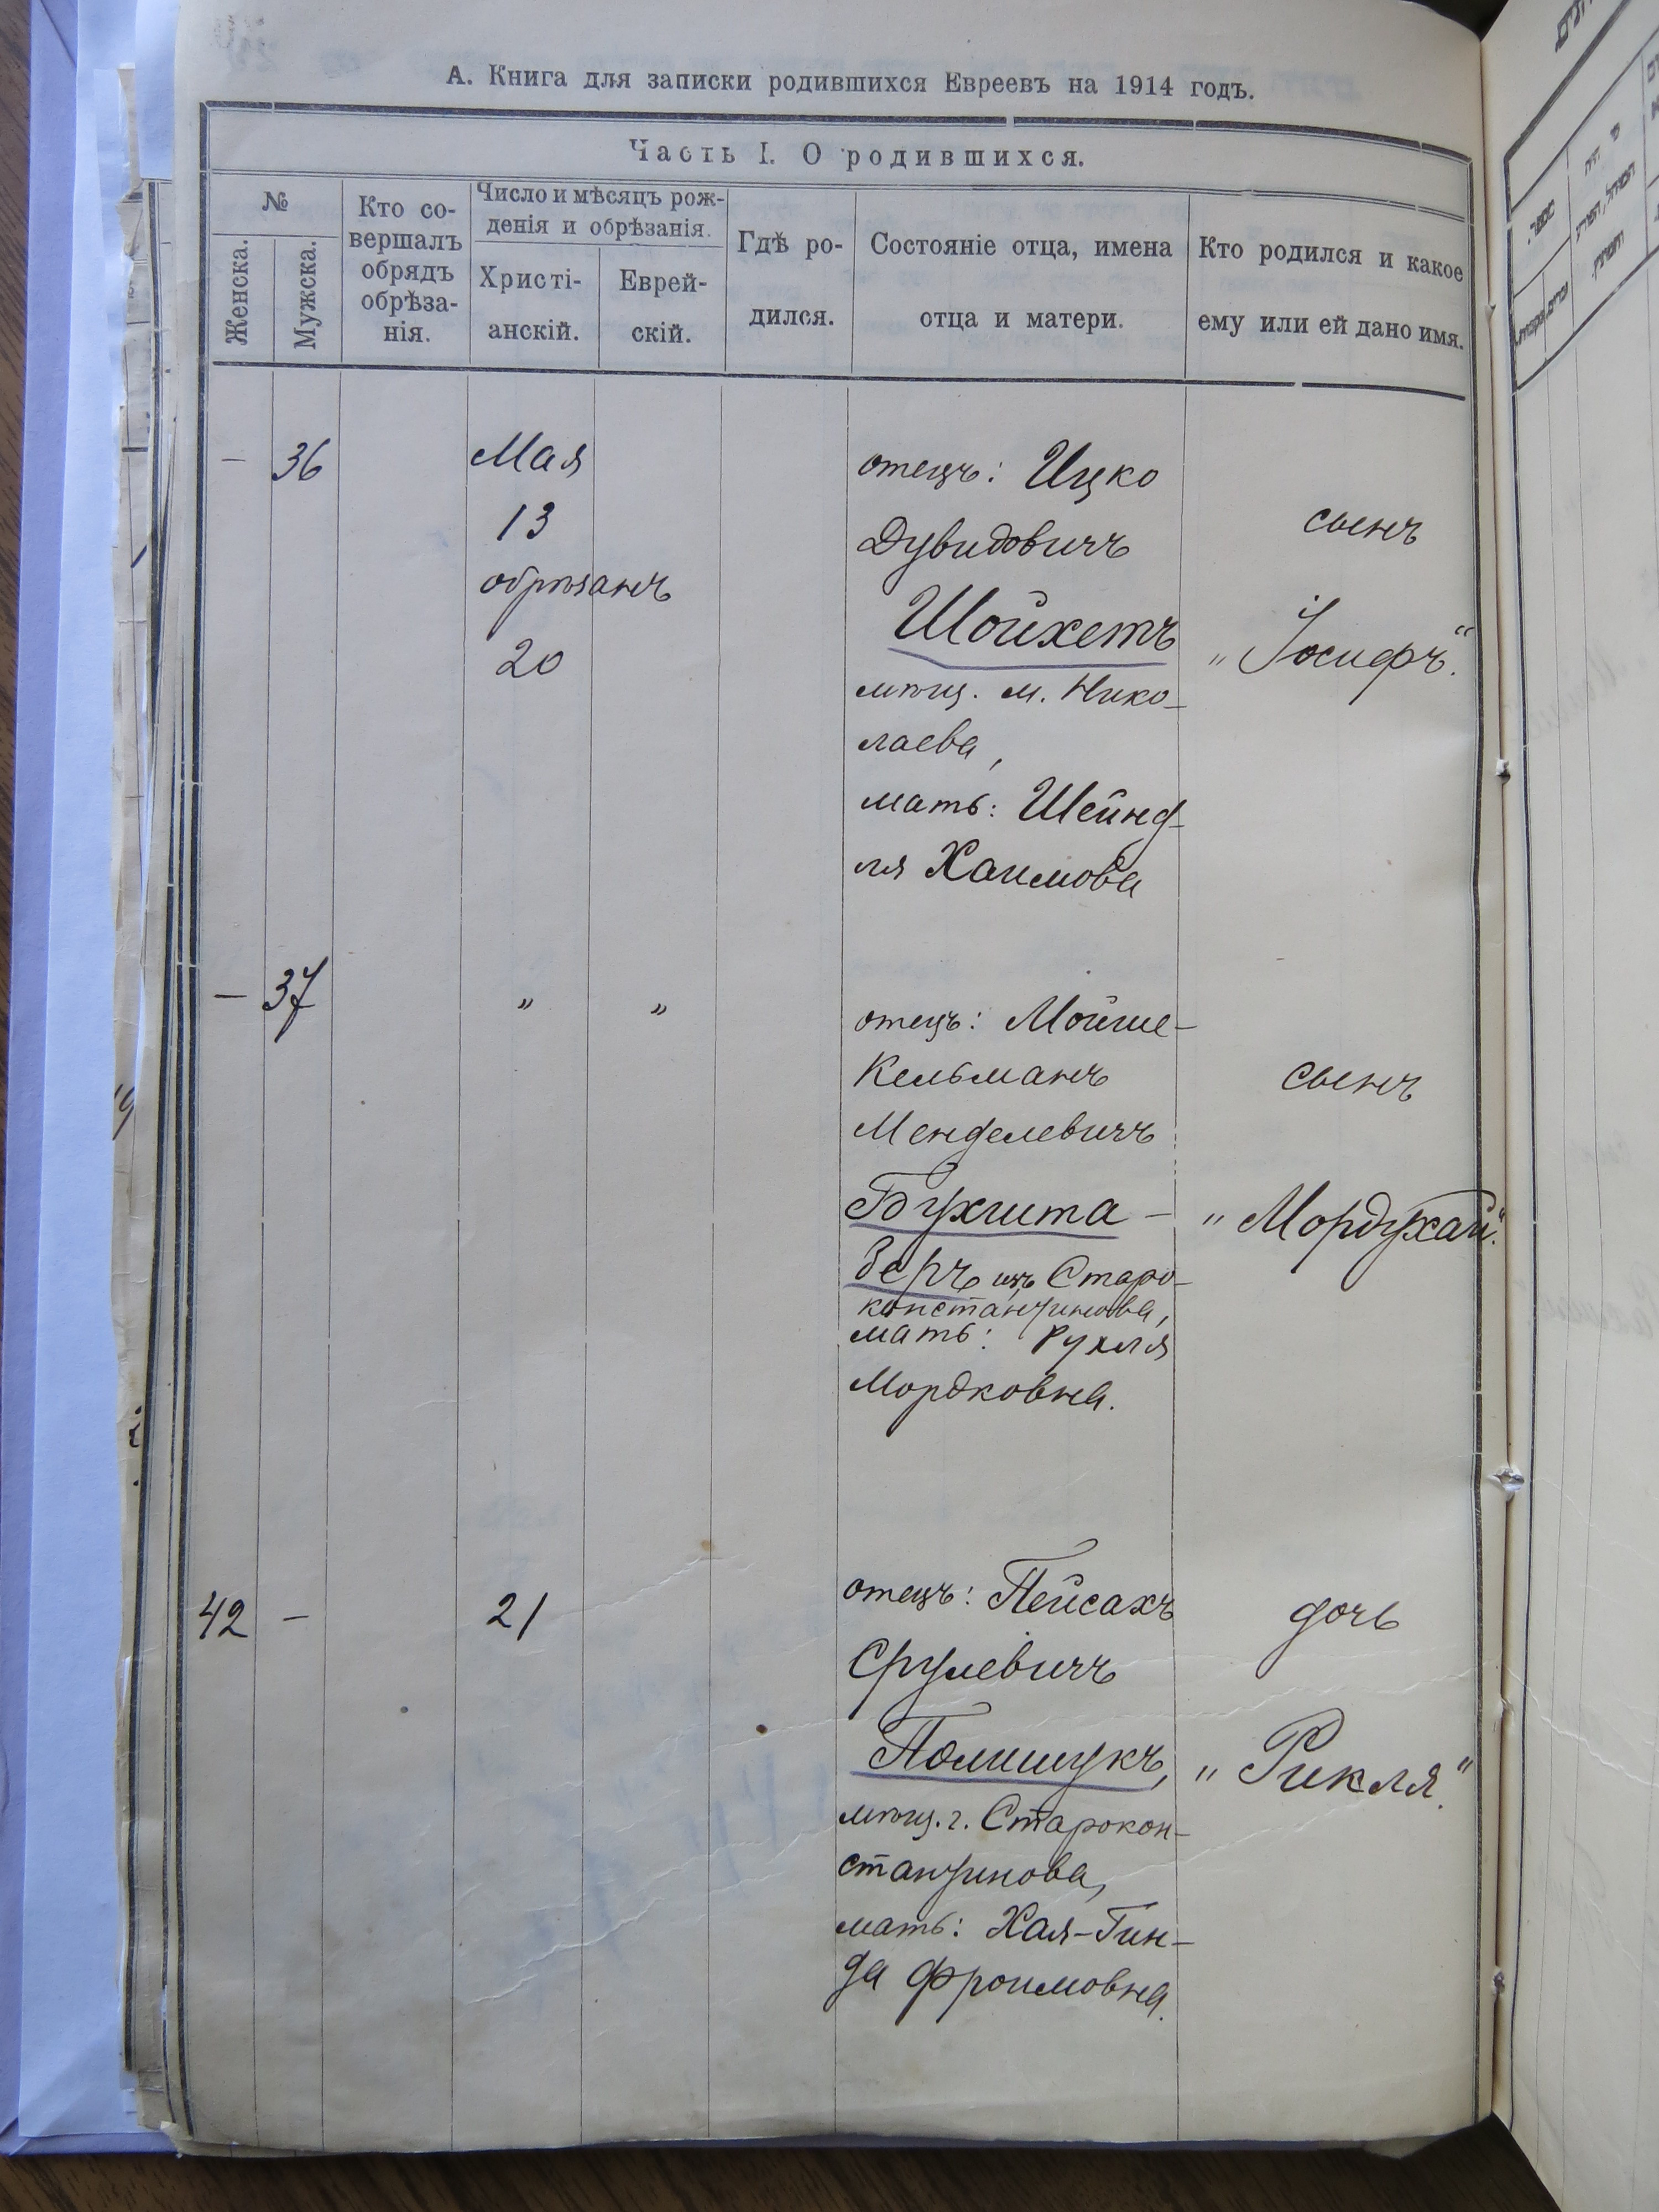 А. Книга для записки родившихся Евреевъ на 1914 годъ.
Часть I. О родившихся.
№
Женска.
Мужска.
Кто со-
вершалъ
обрядъ
обрѣза-
нія.
Число и мѣсяцъ рож-
денія и обрѣзанія.
Христі-
анскій.
Еврей-
скій.
Гдѣ ро-
дился.
Состояніе отца, имена
отца и матери.
Кто родился и какое
ему или ей дано имя.
— 36
Мая
13
обрѣзанъ
20
отецъ: Ицко
Дувидовичъ
Шойхетъ
мѣщ. м. Нико-
лаева,
мать: Шейнд-
ля Хаимова
сынъ
„Іосифъ“.
— 37
„ „
отецъ: Мойше-
Кельманъ
Менделевичъ
Бухшта-
беръ изъ Старо-
константинова,
мать: Рухля
Мордковна.
сынъ
„Мордухай“.
42 —
21
отецъ: Пейсахъ
Срулевичъ
Полищукъ,
мѣщ. г. Старокон-
стантинова,
мать: Хая-Гин-
да Фроимовна.
дочь
„Рикля“.